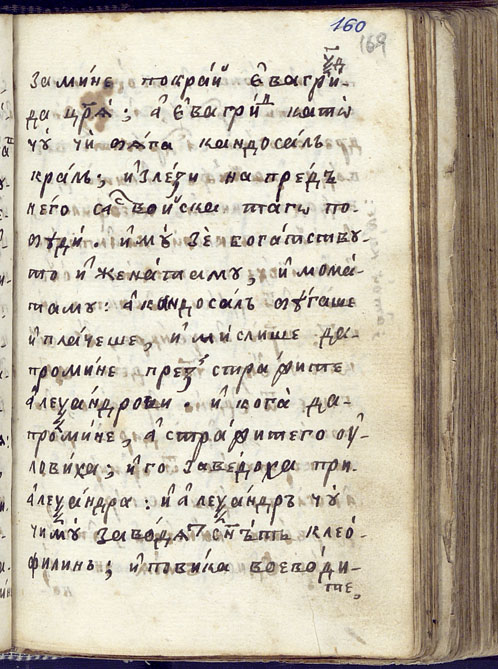 160
169
замѝне покрай є҆вагрѝ-
да цр҃ѧ; а҆ є҆вагрид като̀
чꙋ̀ чѝ
кандосалъ
краль; и҆злези напредъ
него с войска таго по-
и҆мꙋ̀ зѐ богатству-
то и҆ женатамꙋ, и҆ мома-
тамꙋ: а҆ кандосалъ
и҆ пла́чеше, и҆ ми́слише да-
промѝне през стражите
а҆леѯандрови. и҆ кога̀ да-
промѝне а҆ стражитего оу-
лови́ха; и҆ го заведоха при.
а҆леѯа́ндра: и҆ а҆леѯа́ндръ чꙋ̀
чимꙋ̀ заводѧт сн҃ътъ клео́-
филинъ; и҆ повика воево́ди-
те,